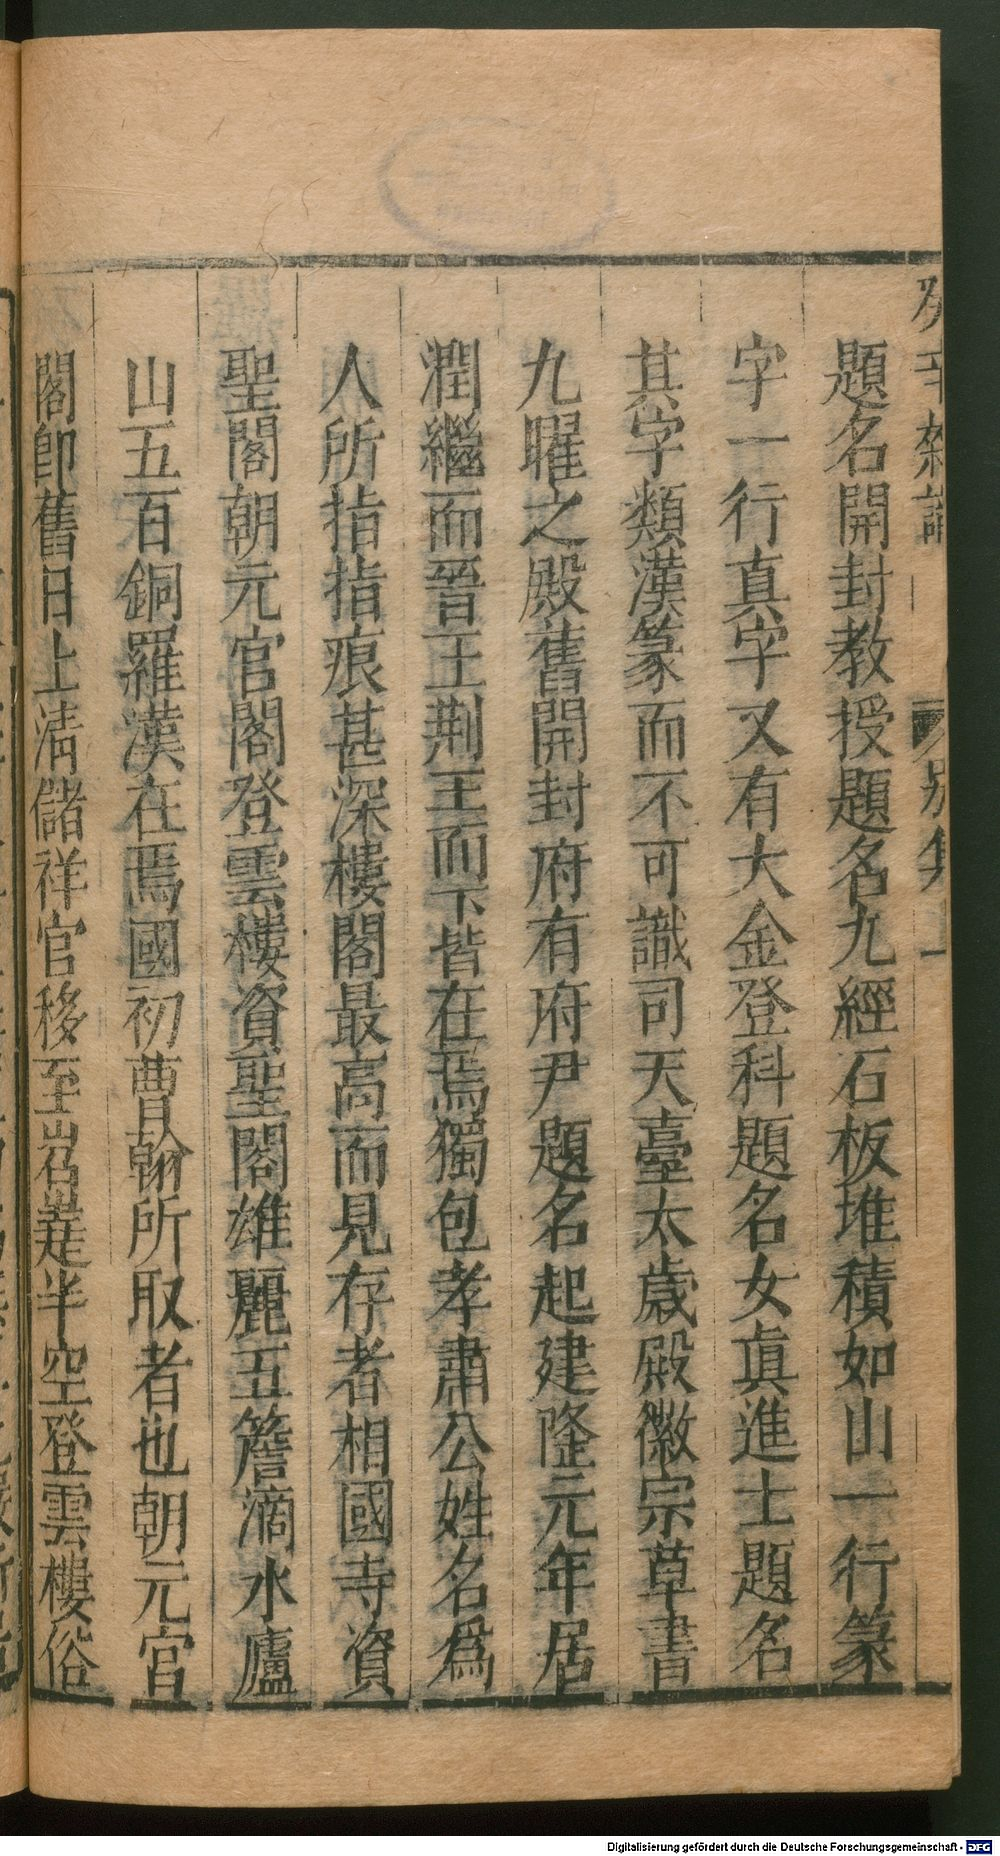 癸辛雜識 別集 一
題名開封教授題名九經石板堆積如山一行篆
字一行真字又有大金登科題名女真進士題名
其字類漢篆而不可識司天臺太歲殿徽宗草書
九曜之殿舊開封府有府尹題名起建隆元年居
潤繼而晉王荆王而下皆在焉獨包孝肅公姓名爲
人所指指痕甚深樓閣最高而見存者相國寺資
聖閣朝元宫閣登雲樓資聖閣雄麗五簷滴水廬
山五百銅羅漢在焉國初曹翰所取者也朝元宫
閣卽舊日上淸儲祥宫移至岧嶤半空登雲樓俗
Digitalisierung gefördert durch die Deutsche Forschungsgemeinschaft - DFG